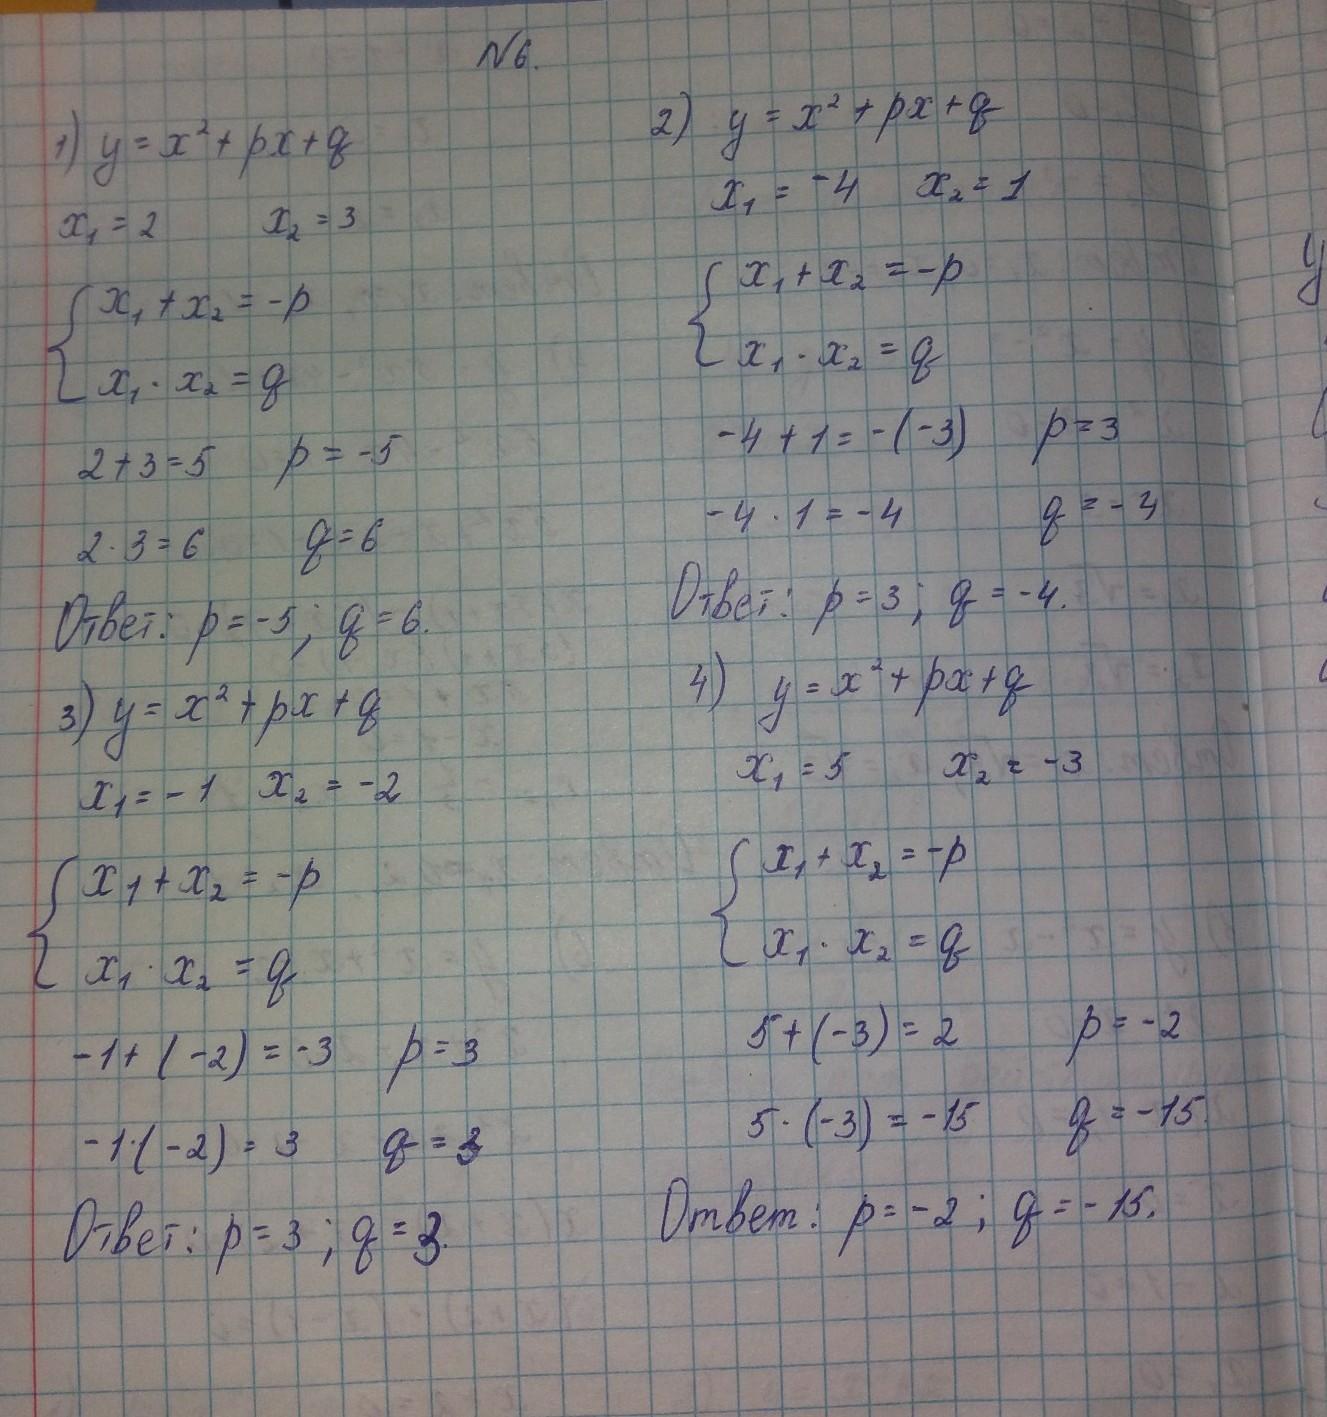 №6.
1) y = x² + px + q
x₁ = 2 x₂ = 3
x₁ + x₂ = -p
x₁ · x₂ = q
2 + 3 = 5 p = -5
2 · 3 = 6 q = 6
Ответ: p = -5; q = 6.
2) y = x² + px + q
x₁ = -4 x₂ = 1
x₁ + x₂ = -p
x₁ · x₂ = q
-4 + 1 = -(-3) p = 3
-4 · 1 = -4 q = -4
Ответ: p = 3; q = -4.
3) y = x² + px + q
x₁ = -1 x₂ = -2
x₁ + x₂ = -p
x₁ · x₂ = q
-1 + (-2) = -3 p = 3
-1·(-2) = 3 q = 3
Ответ: p = 3; q = 3.
4) y = x² + px + q
x₁ = 5 x₂ = -3
x₁ + x₂ = -p
x₁ · x₂ = q
5 + (-3) = 2 p = -2
5 · (-3) = -15 q = -15.
Ответ: p = -2; q = -15.
y